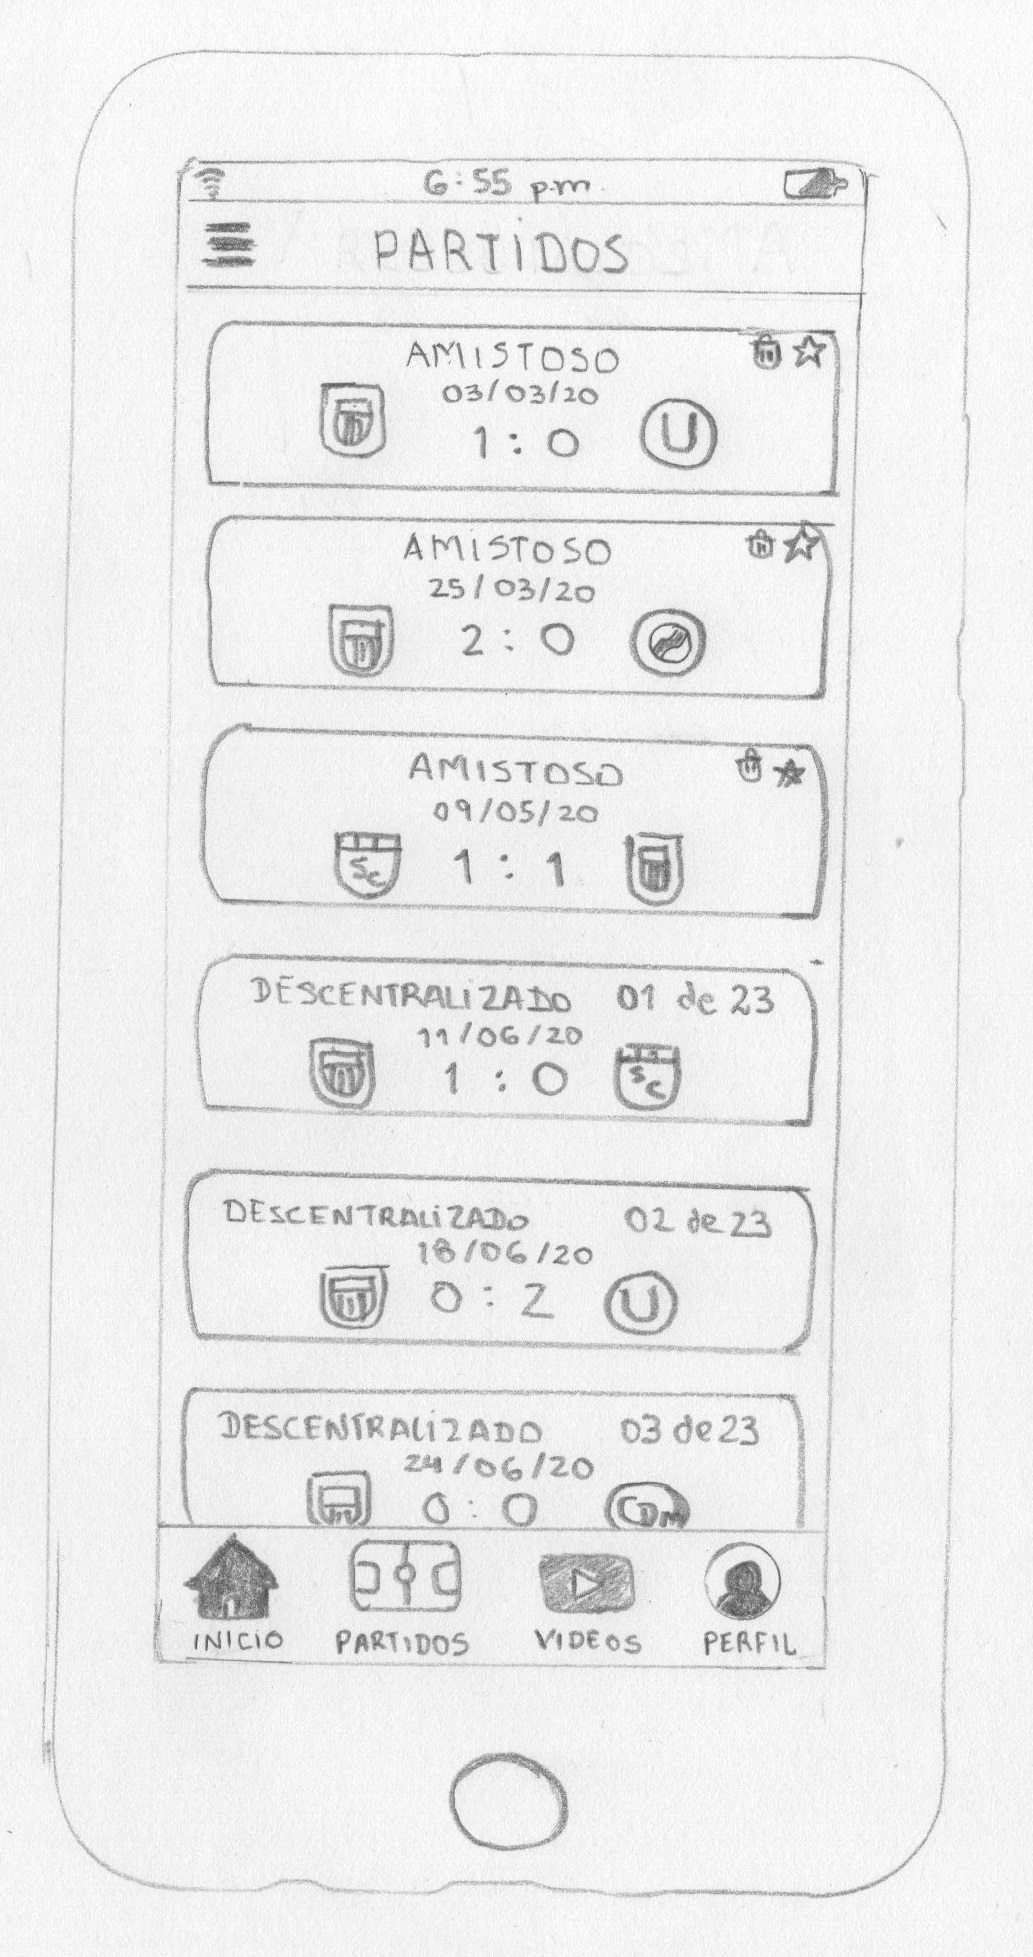 6:55 p.m.
PARTIDOS
AMISTOSO
03/03/20
1 : 0 U
AMISTOSO
25/03/20
2 : 0
AMISTOSO
09/05/20
SC 1 : 1
DESCENTRALIZADO 01 de 23
11/06/20
1 : 0 SC
DESCENTRALIZADO 02 de 23
18/06/20
0 : 2 U
DESCENTRALIZADO 03 de 23
24/06/20
0 : 0 CDM
INICIO PARTIDOS VIDEOS PERFIL